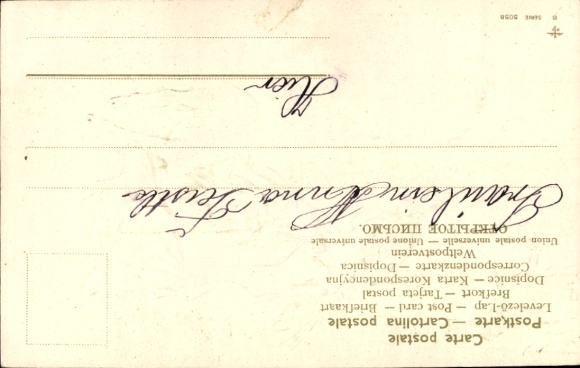 Carte postale
Postkarte — Cartolina postale
Levelező-Lap — Post card — Briefkaart
Brefkort — Tarjeta postal
Dopisnice — Karta Korespondencyjna
Correspondenzkarte — Dopisnica
Weltpostverein
Union postale universelle — Unione postale universale
ОТКРЫТОЕ ПИСЬМО.
Fräulein Anna
Hier
B SERIE 5058